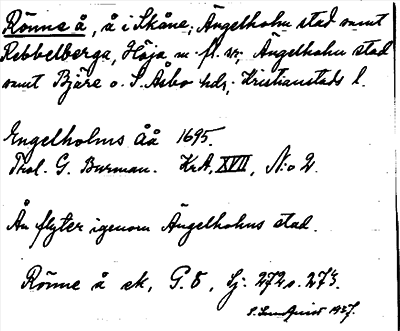 Rönne å, å i Skåne; Ängelholm stad samt
Rebbelberga, Höja m fl. sr; Ängelholm stad
samt Bjäre o. S. Åsbo hdr; Kristianstads l.
Engelholms Åå 1695.
G. Burman. KrA, XVII, N:o 2.
Ån flyter igenom Ängelholms stad.
Rönne å ek, G. 5, Sj. 272 o. 273.
1927.